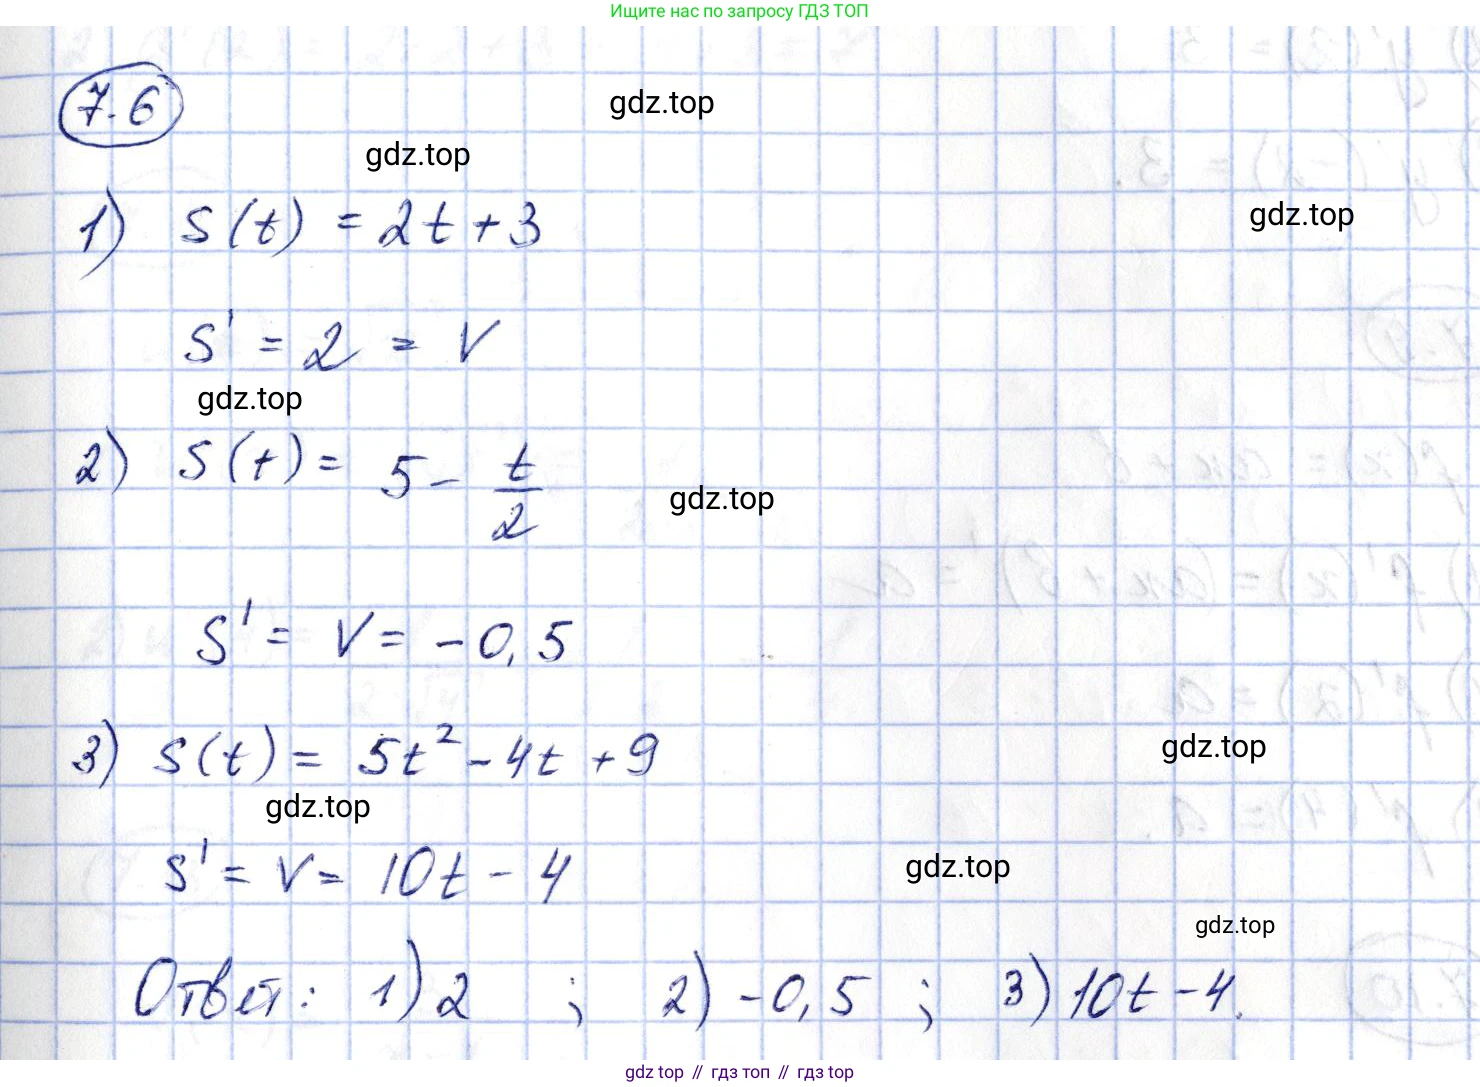 Ищите нас по запросу ГДЗ ТОП
7.6
gdz.top
gdz.top
1) S(t) = 2t + 3
gdz.top
S' = 2 = V
gdz.top
2) S(t) = 5 - t/2
gdz.top
S' = V = -0,5
3) S(t) = 5t² - 4t + 9
gdz.top
gdz.top
S' = V = 10t - 4
gdz.top
gdz.top
Ответ: 1) 2 ; 2) -0,5 ; 3) 10t - 4.
gdz top // гдз топ // гдз top